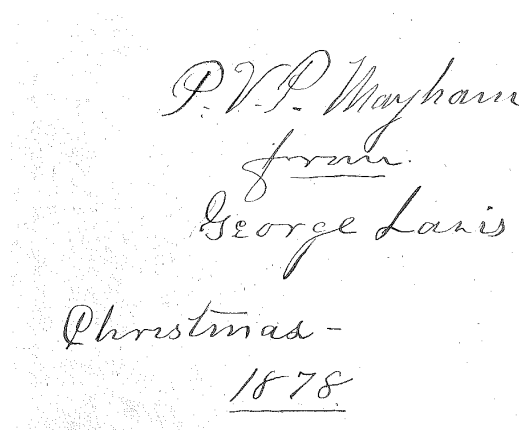 P. V. P. Mayham
from
George Lanis
Christmas -
1878